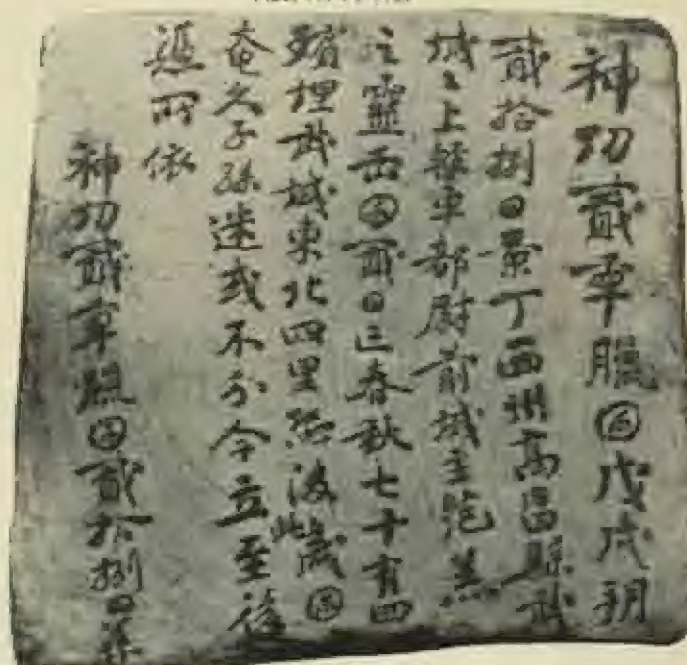 神功貳年臘囝戊戌朔
貳拾捌日景丁西州高昌縣武
城〻上輕車都尉前城主范羔
之靈正囝貳日亡春秋七十有四
殯埋武城東北四里恐後歲囝
奄久子孫迷或不分今立至後
憑所依
神功貳年臘囝貳拾捌日葬